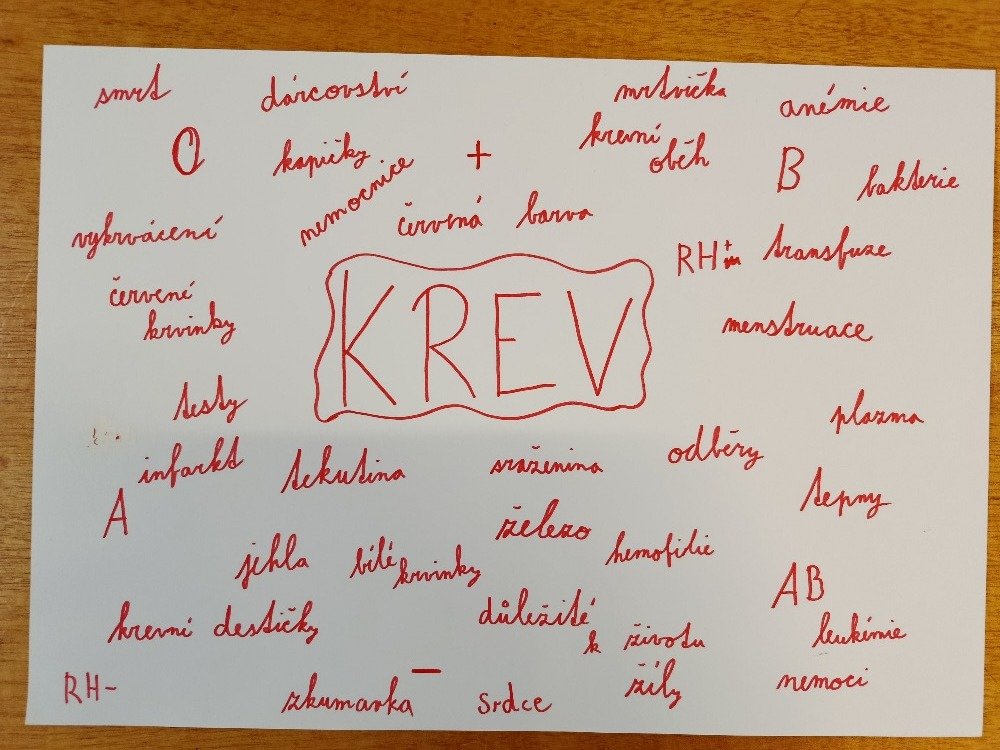 smrt
dárcovství
mrtvička
anémie
O
kapičky
+
krevní
oběh
B
bakterie
nemocnice
vykrvácení
červená barva
RH±
transfuze
červené
krvinky
KREV
menstruace
testy
plazma
infarkt
tekutina
sraženina
odběry
A
železo
tepny
jehla
bílé
krvinky
hemofilie
AB
krevní destičky
důležité
k životu
leukémie
RH-
zkumavka
-
srdce
žíly
nemoci